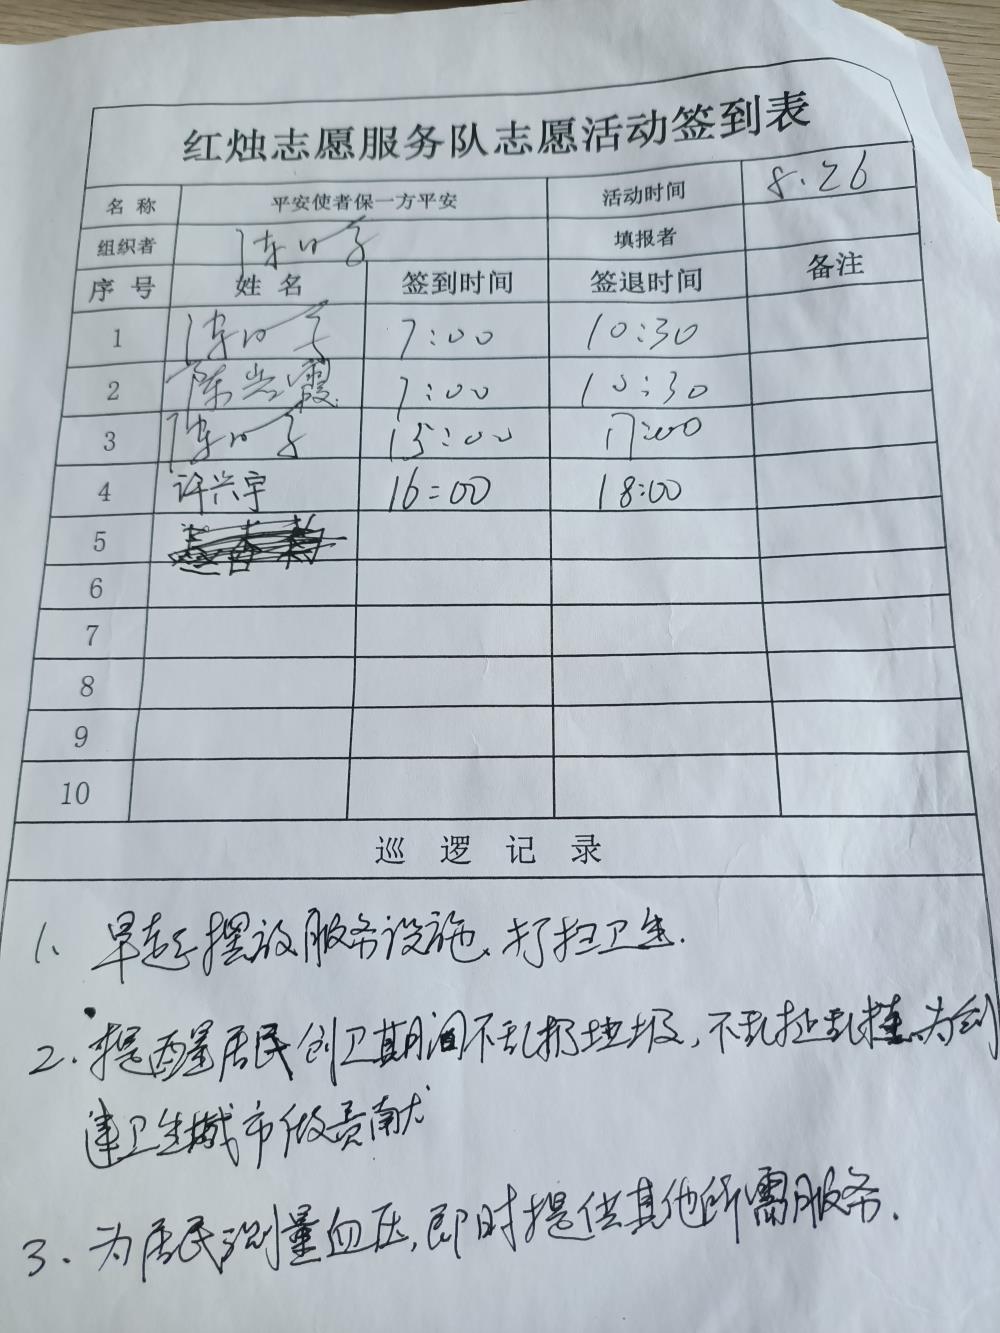 红烛志愿服务队志愿活动签到表
名称 平安使者保一方平安 活动时间 8.26
组织者 填报者
序号 姓名 签到时间 签退时间 备注
1 7:00 10:30
2 陈岩霞 7:00 10:30
3 15:00 17:00
4 许兴宇 16:00 18:00
5
6
7
8
9
10
巡逻记录
1、早起摆放服务设施、打扫卫生.
2.提醒居民创卫期间不乱扔垃圾,不乱扯乱挂、为创
建卫生城市做贡献
3.为居民测量血压,即时提供其他所需服务.